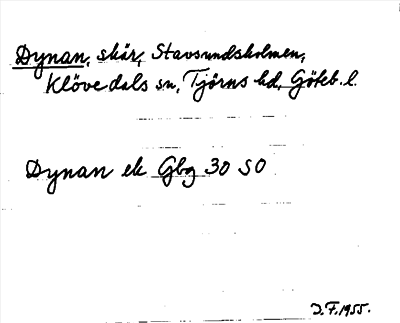 Dynan, skär, Stavsundsholmen,
Klövedals sn, Tjörns hd, Göteb. l.
Dynan ek Gbg 30 SO
J.F. 1955.